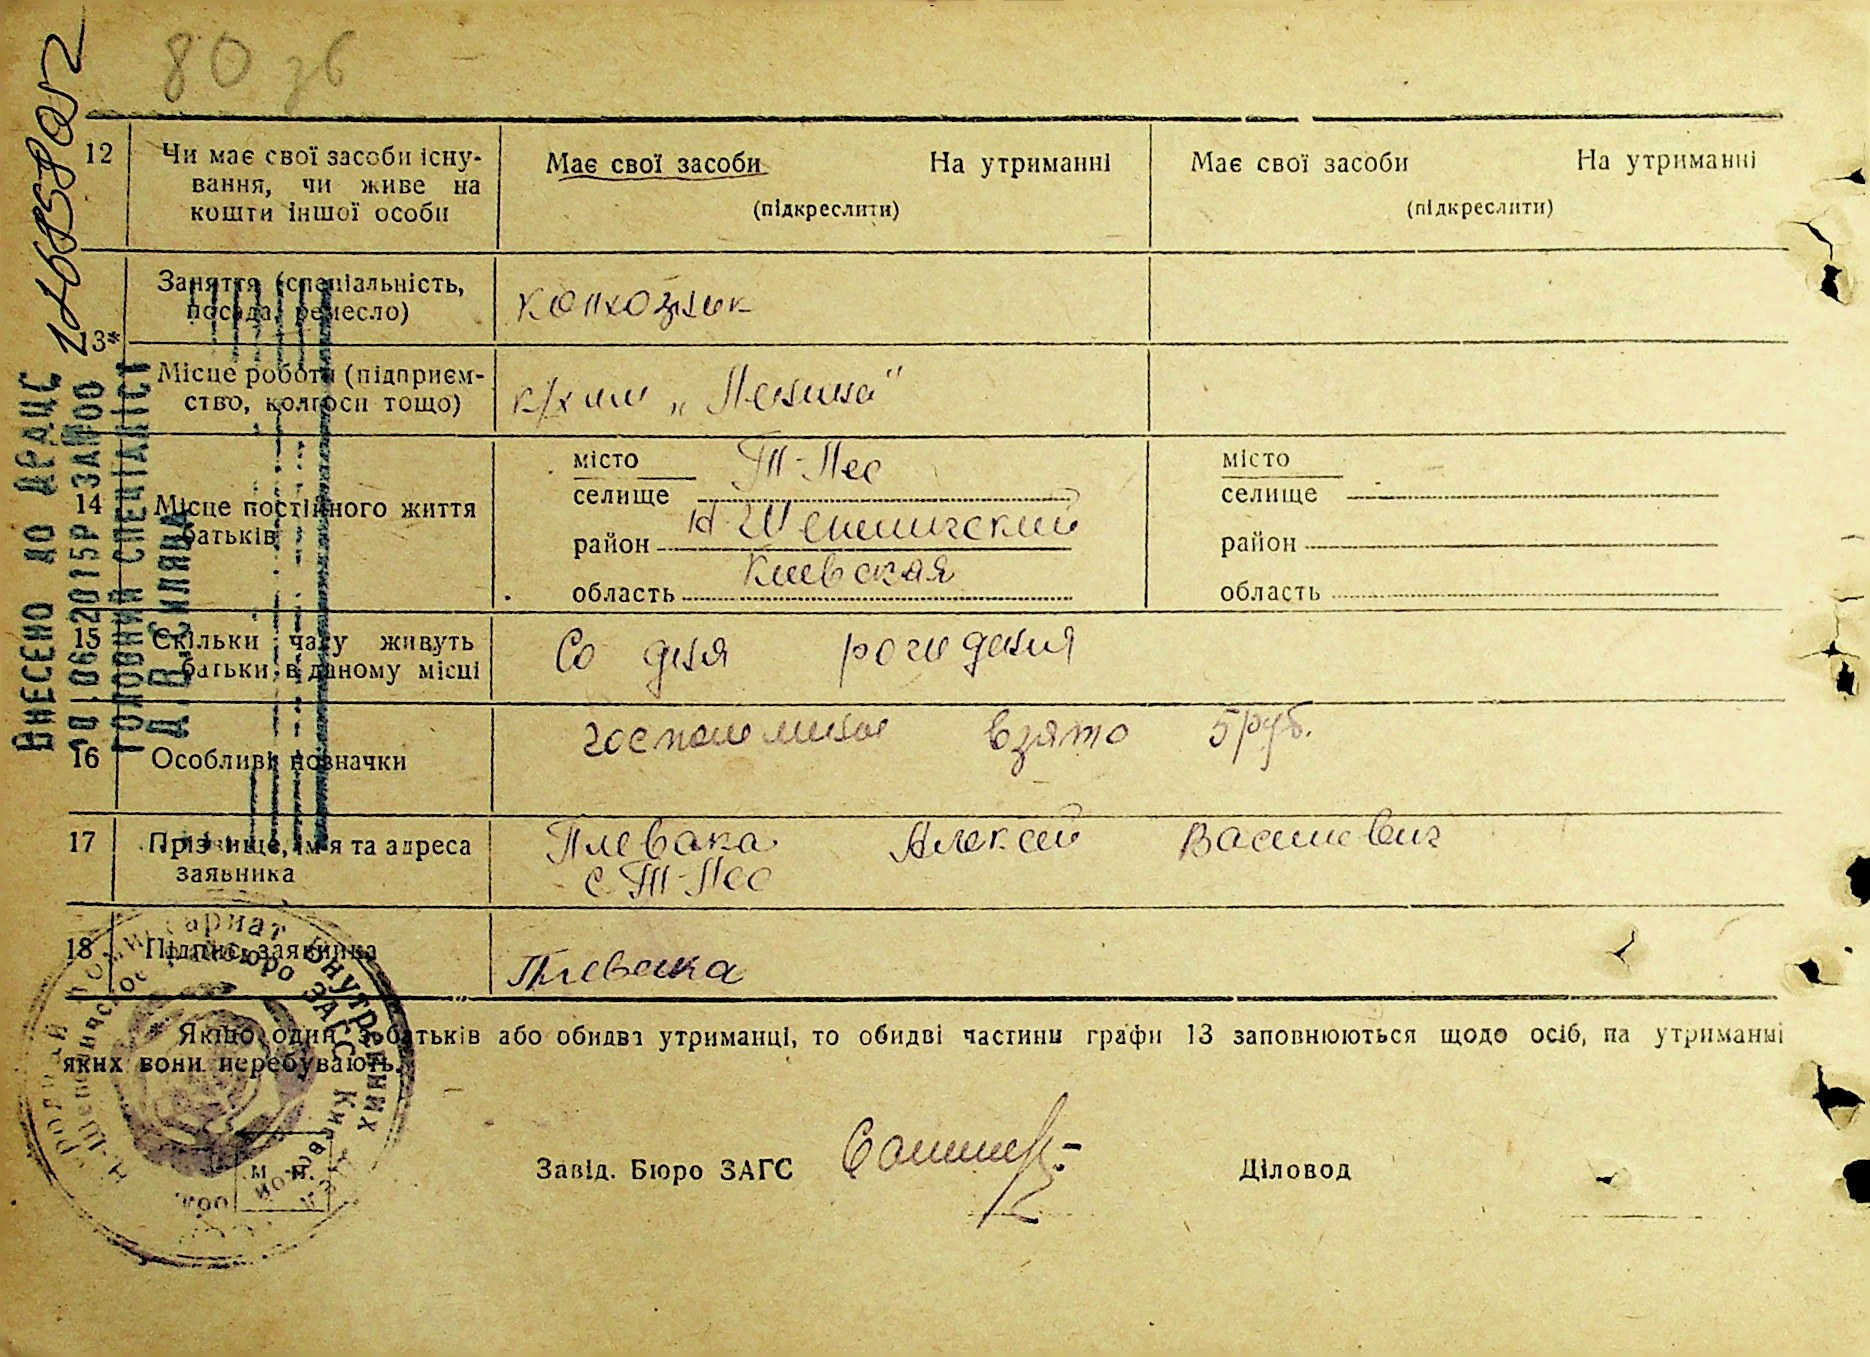 80 зб
12 Чи має свої засоби існу-
вання, чи живе на
кошти іншої особи
Має свої засоби На утриманні
(підкреслити)
Має свої засоби На утриманні
(підкреслити)
13*
Заняття (спеціальність,
посада, ремесло)
колхозник
Місце роботи (підприєм-
ство, колгосп тощо)
к/х им „Ленина"
14 Місце постійного життя
батьків
місто
селище Т-Лес
район Н Шепеличский
область Киевская
місто
селище
район
область
15 Скільки часу живуть
батьки в даному місці
Со дня рождения
16 Особливі позначки
госпошлина взято 5 руб.
17 Прізвище, ім'я та адреса
заявника
Плевака Алексей Василевич
с. Т-Лес
18 Підпис заявника
Плевака
* Якщо один з батьків або обидва утриманці, то обидві частини графи 13 заповнюються щодо осіб, на утриманні
яких вони перебувають.
Завід. Бюро ЗАГС
Діловод
М. П.
ВНЕСЕНО ДО ДРАЦС
.06.2015Р ЗА №00
ГОЛОВНИЙ СПЕЦІАЛІСТ
Д.В.
Внутренних
бюро ЗАГС Киевской обл.